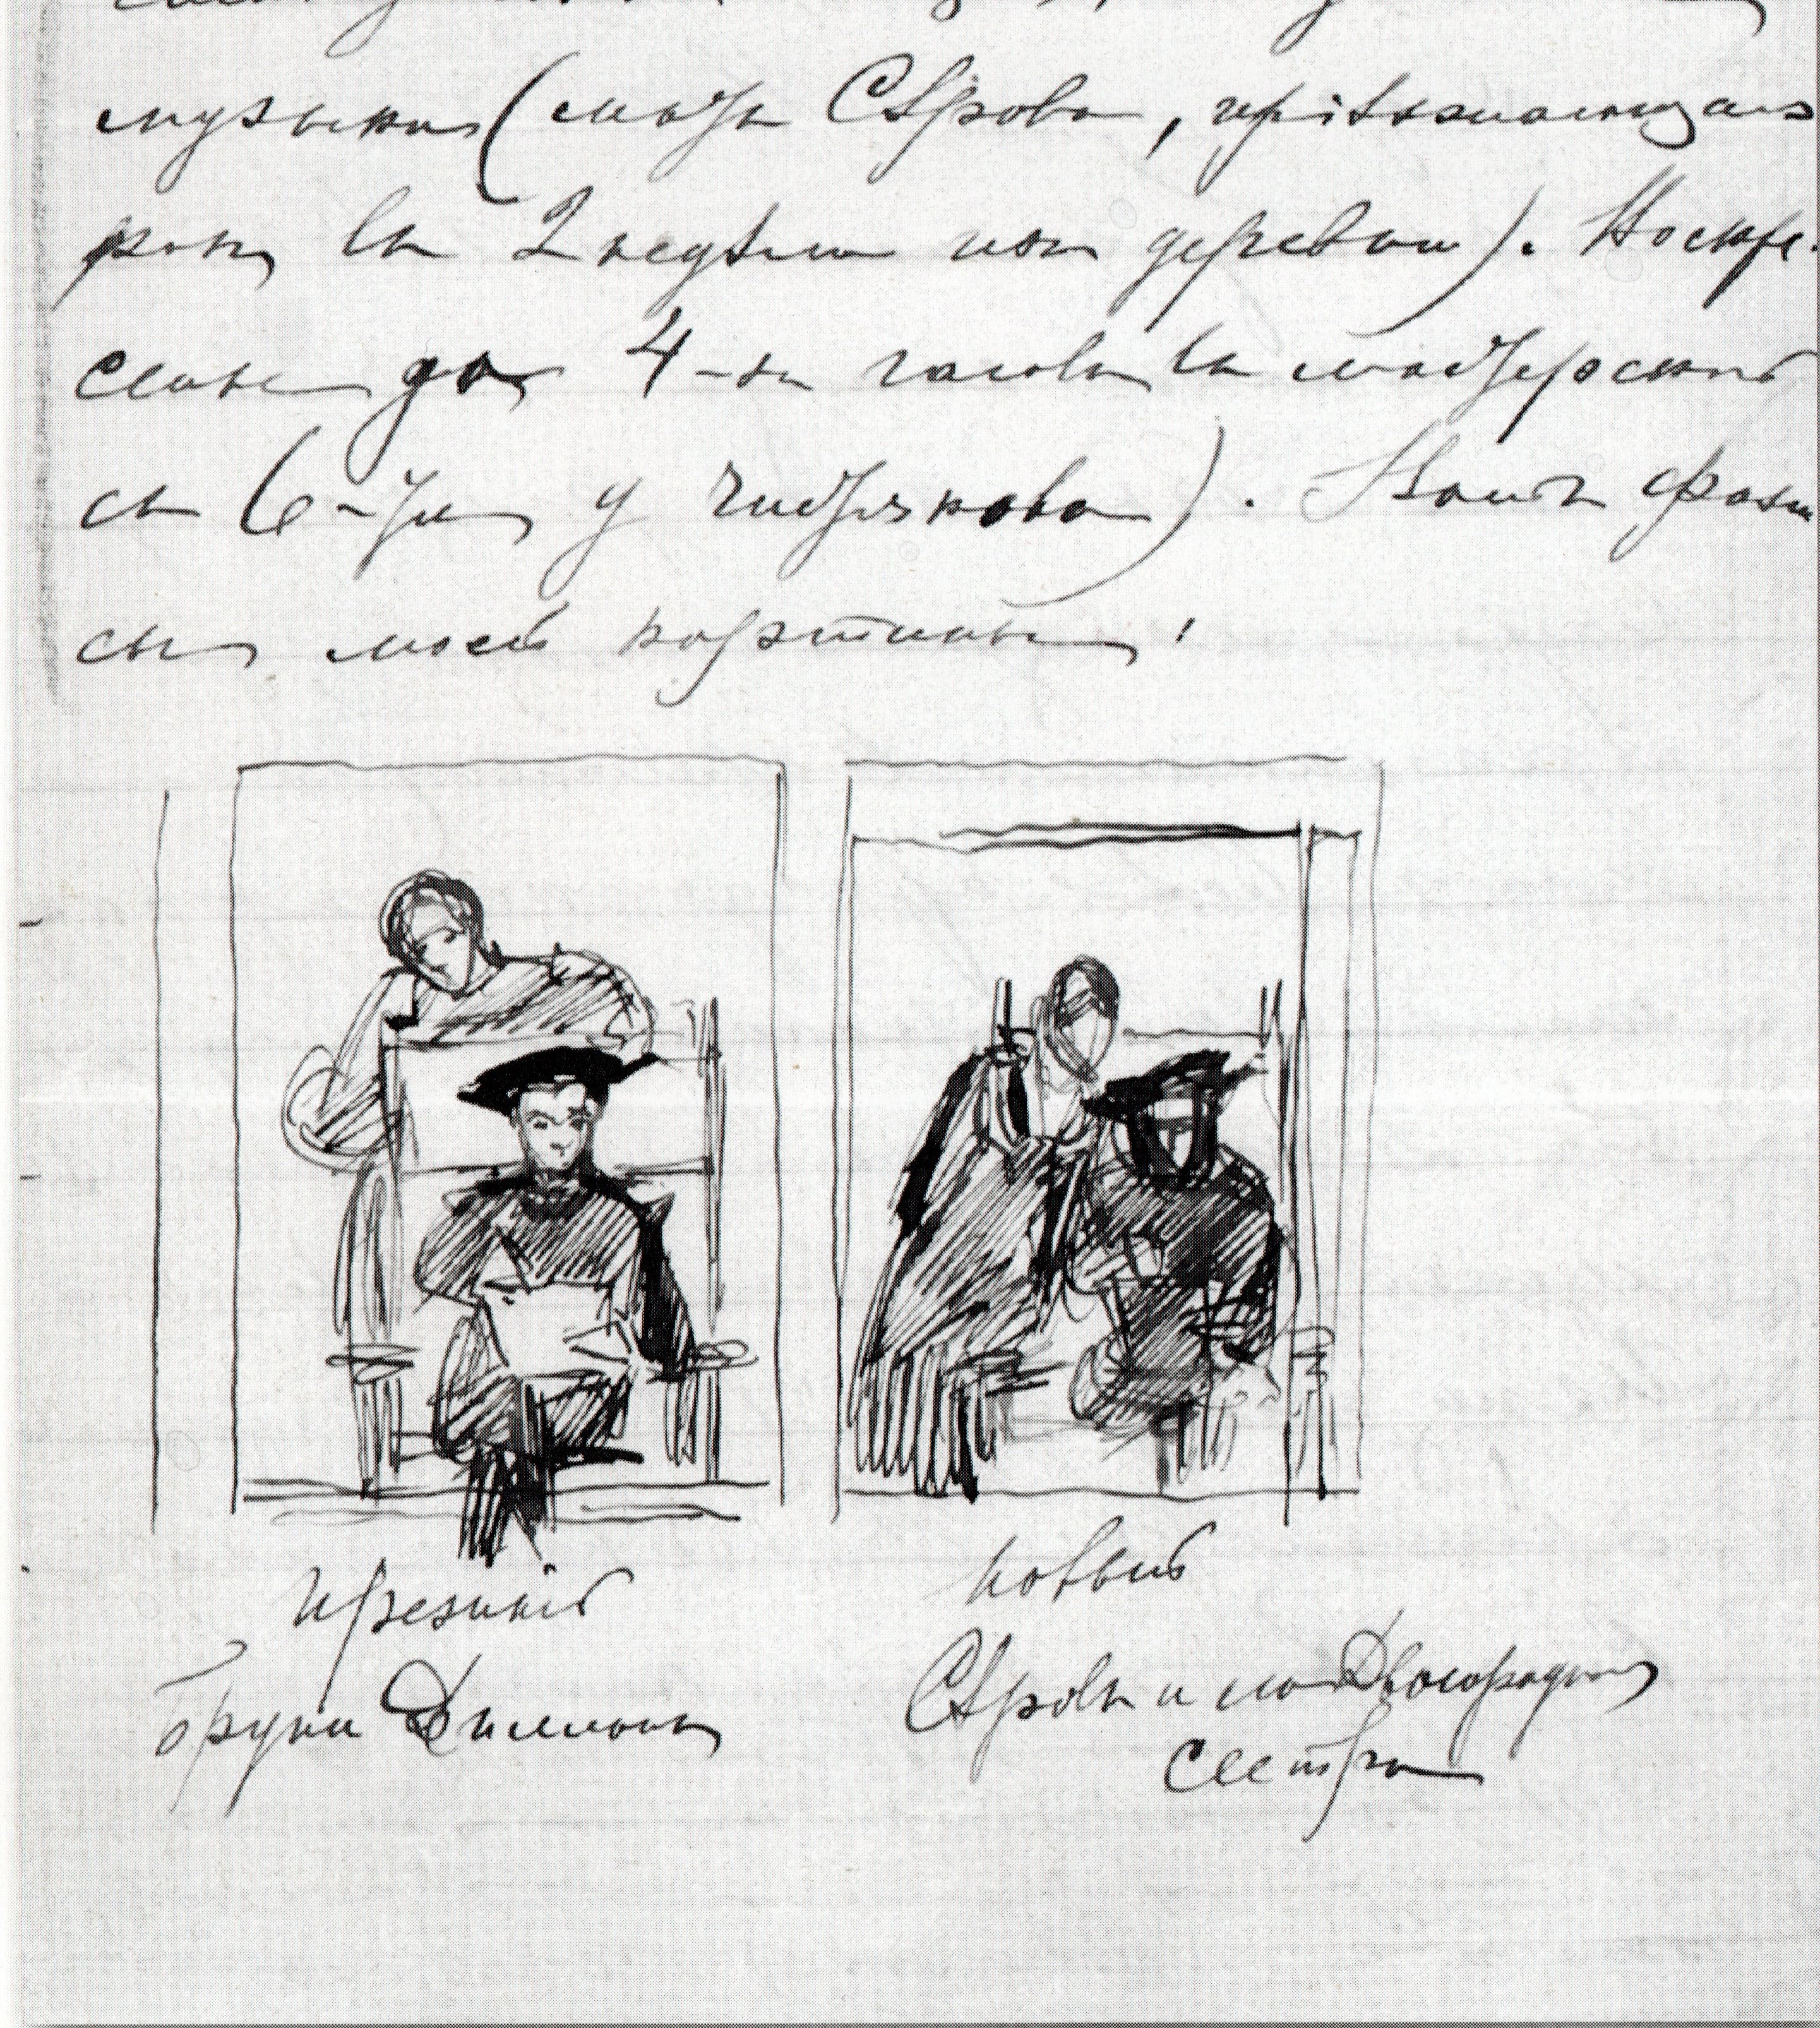 музыка (мать Сѣрова, пріѣзжающая
разъ въ 2 недѣли изъ деревни). Воскре-
сенье до 4-хъ часовъ въ мастерской
съ (6-ти у Чистякова). Вотъ фази
сы моей картины:
прежній
Бруни Диллонъ
новый
Сѣровъ и его Двоюродная
сестра